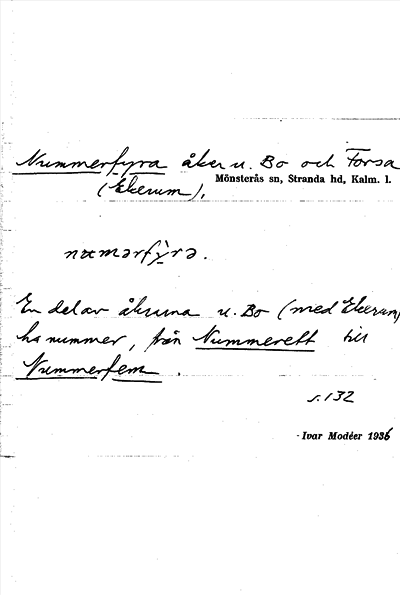 Nummerfyra åker u. Bo och Forsa
(Ekerum). Mönsterås sn, Stranda hd, Kalm. l.
nɯmərfỳrə.
En del av åkrarna u. Bo (med Ekerum)
ha nummer, från Nummerett till
Nummerfem.
s. 132
Ivar Modéer 1936